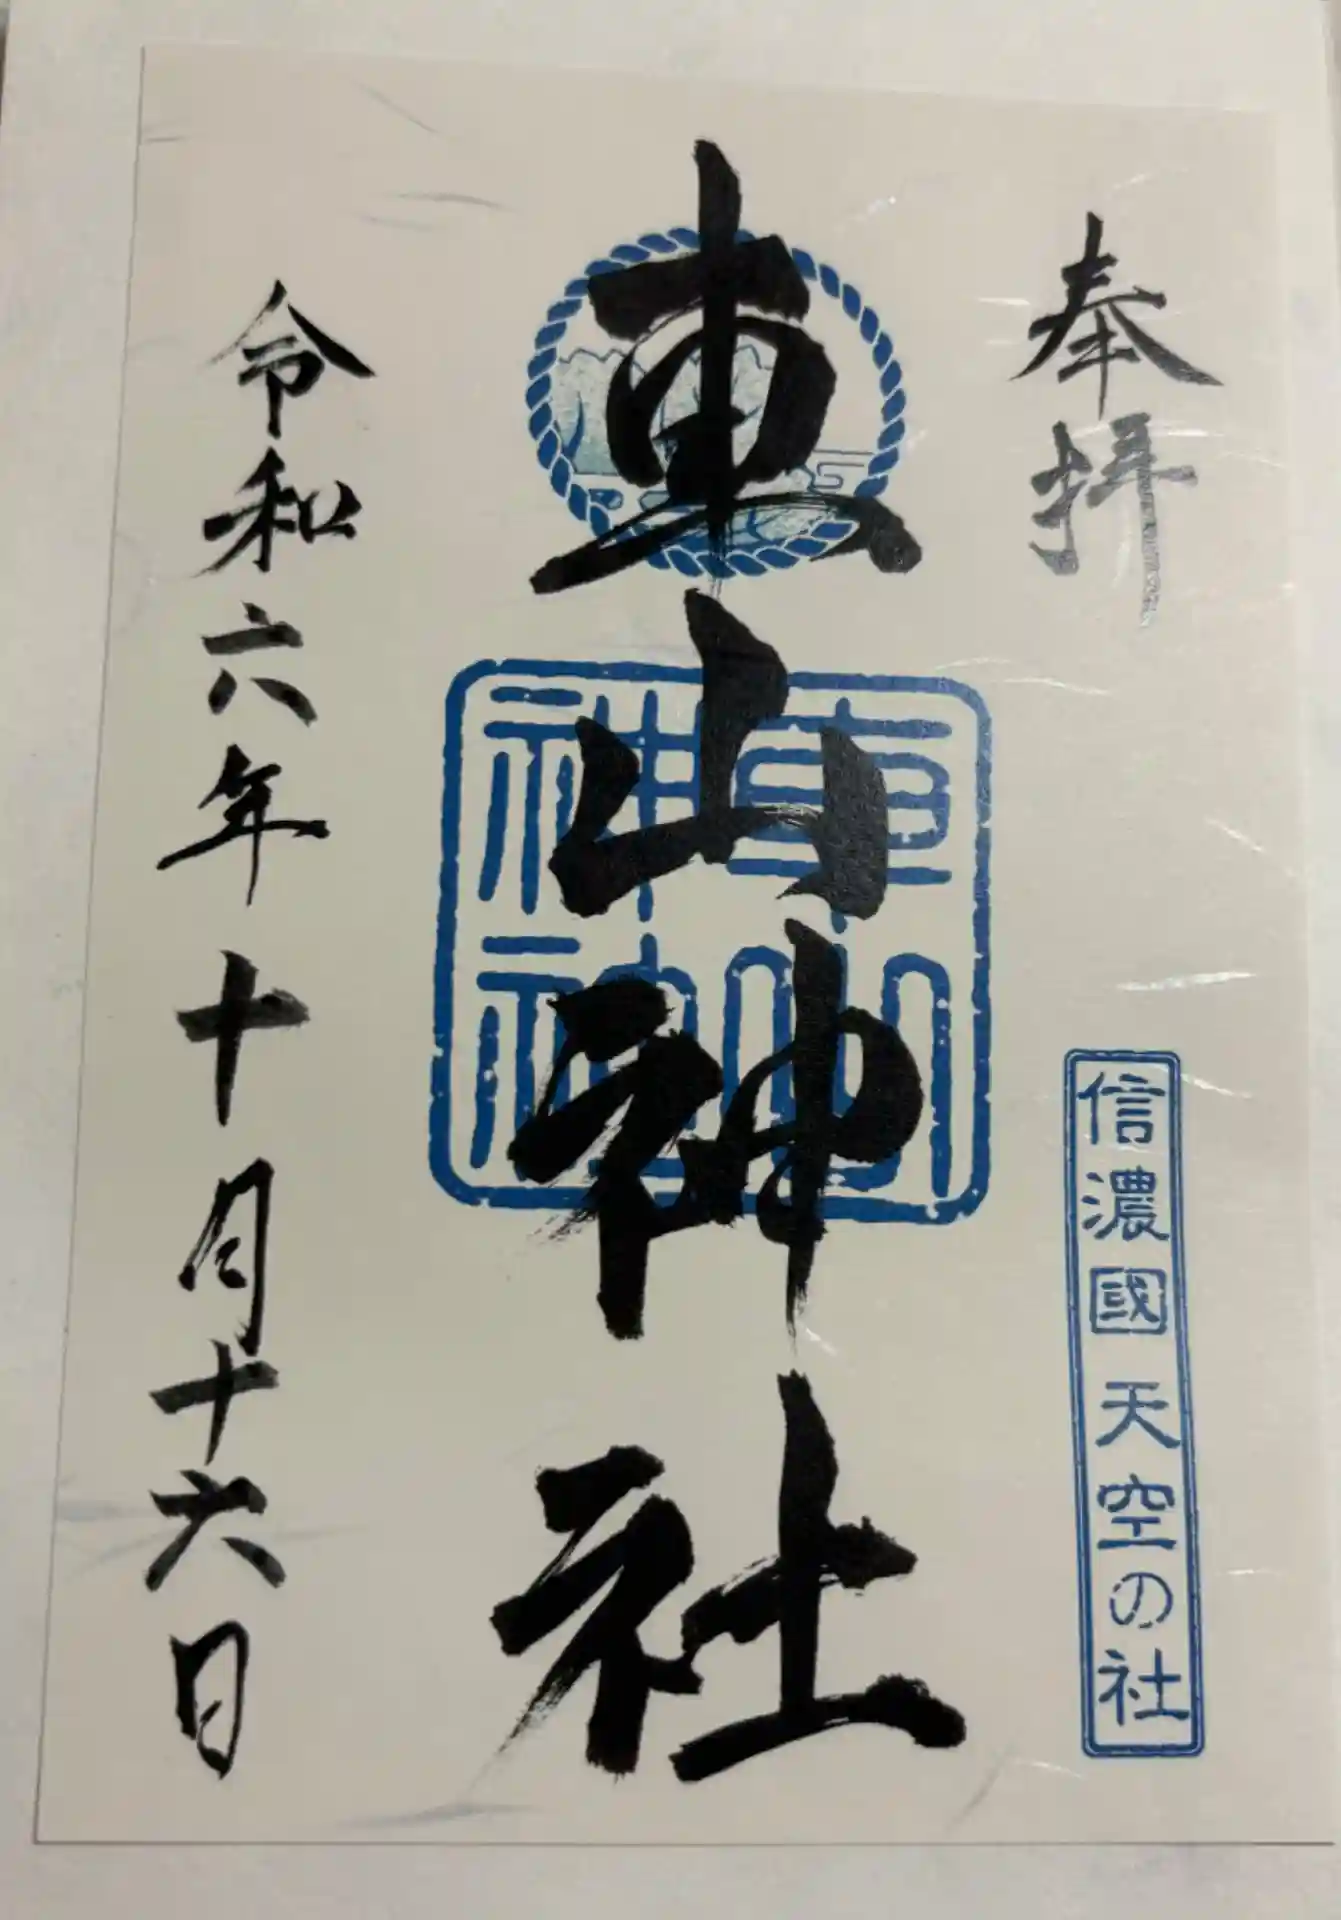 奉拝
信濃國 天空の社
東山神社
東山
神社
令和六年十月十六日